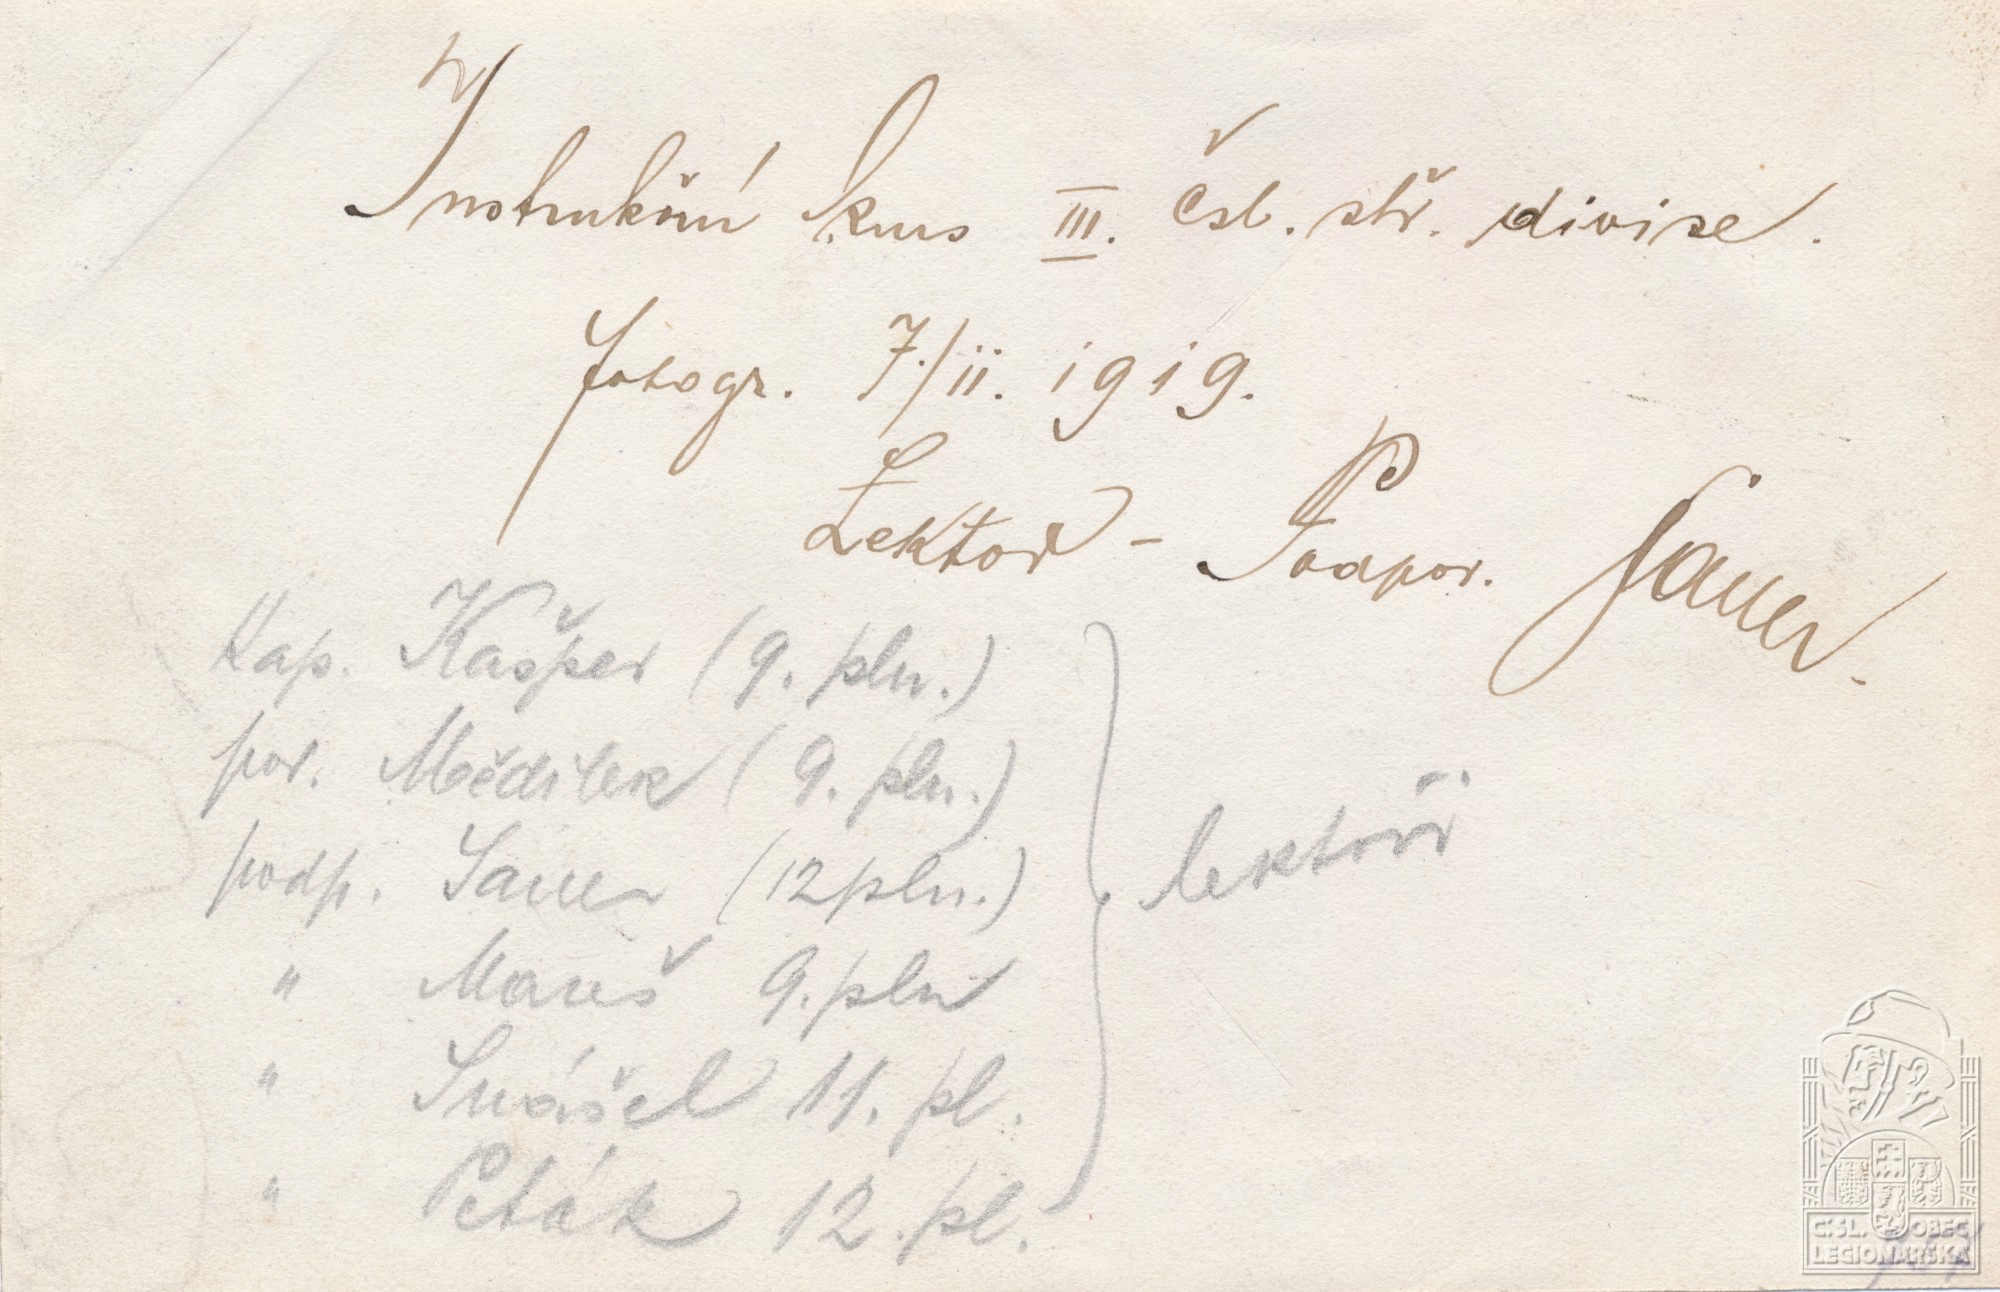 Instrukční kurs III. čsl. stř. divise.
fotogr. 7./II. 1919.
Lektor - Podpor. Sauer.
Kap. Kašper (9. plu.)
por. Mědílek (9. plu.)
podp. Sauer (12 plu.)
" Mareš 9. plu
" Snášel 11. pl.
" Peták 12. pl.
lektoři
ČSL. OBEC
LEGIONÁŘSKÁ